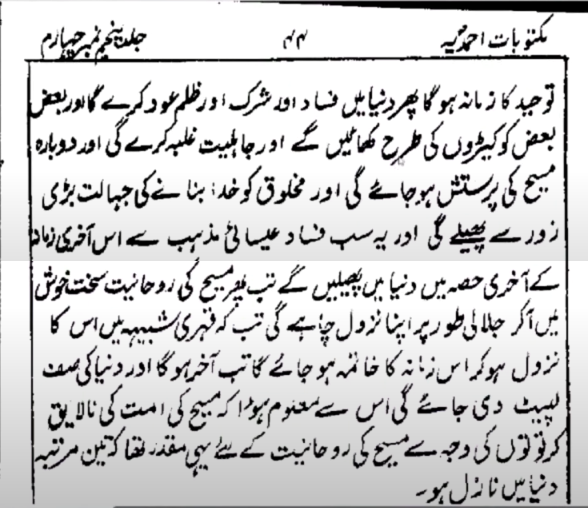 مکتوبات احمدیہ ۴۴ جلد پنجم نمبر چہارم
توحید کا زمانہ ہوگا پھر دنیا میں فساد اور شرک اور ظلم عود کرے گا اور بعض
بعض کو کیڑوں کی طرح کھائیں گے اور جاہلیت غلبہ کرے گی اور دوبارہ
مسیح کی پرستش ہو جائے گی اور مخلوق کو خدا بنانے کی جہالت بڑی
زور سے پھیلے گی اور یہ سب فساد عیسائی مذہب سے اس آخری زمانہ
کے آخری حصہ میں دنیا میں پھیلیں گے تب پھر مسیح کی روحانیت سخت جوش
میں آکر جلالی طور پر اپنا نزول چاہے گی تب ایک قہری شبیہہ میں اس کا
نزول ہوکر اس زمانہ کا خاتمہ ہو جائے گا تب آخر ہوگا اور دنیا کی صف
لپیٹ دی جائے گی اس سے معلوم ہوا کہ مسیح کی امت کی نالایق
کرتوتوں کی وجہ سے مسیح کی روحانیت کے لئے یہی مقدر تھا کہ تین مرتبہ
دنیا میں نازل ہو۔